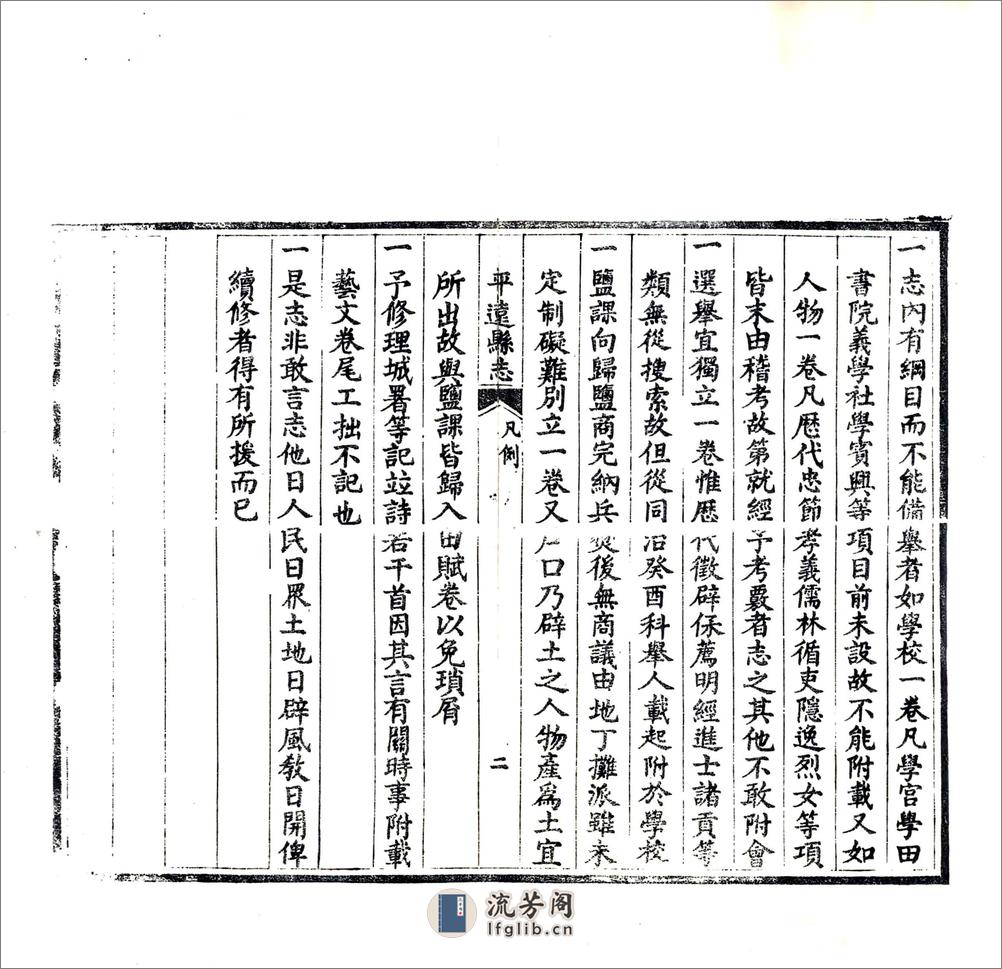 一志內有綱目而不能備舉者如學校一卷凡學宮學田
書院義學社學賓興等項目前未設故不能附載又如
人物一卷凡歷代忠節孝義儒林循吏隱逸烈女等項
皆末由稽考故第就經予考覈者志之其他不敢附會
一選舉宜獨立一卷惟歷代徵辟保薦明經進士諸貢等
類無從搜索故但從同治癸酉科舉人載起附於學校
一鹽課向歸鹽商完納兵燹後無商議由地丁攤派雖未
定制礙難別立一卷又戶口乃辟土之人物產爲土宜
平遠縣志
凡例
二
所出故與鹽課皆歸入田賦卷以免瑣屑
一予修理城署等記竝詩若干首因其言有關時事附載
藝文卷尾工拙不記也
一是志非敢言志他日人民日眾土地日辟風敎日開俾
續修者得有所援而已
流芳阁
lfglib.cn